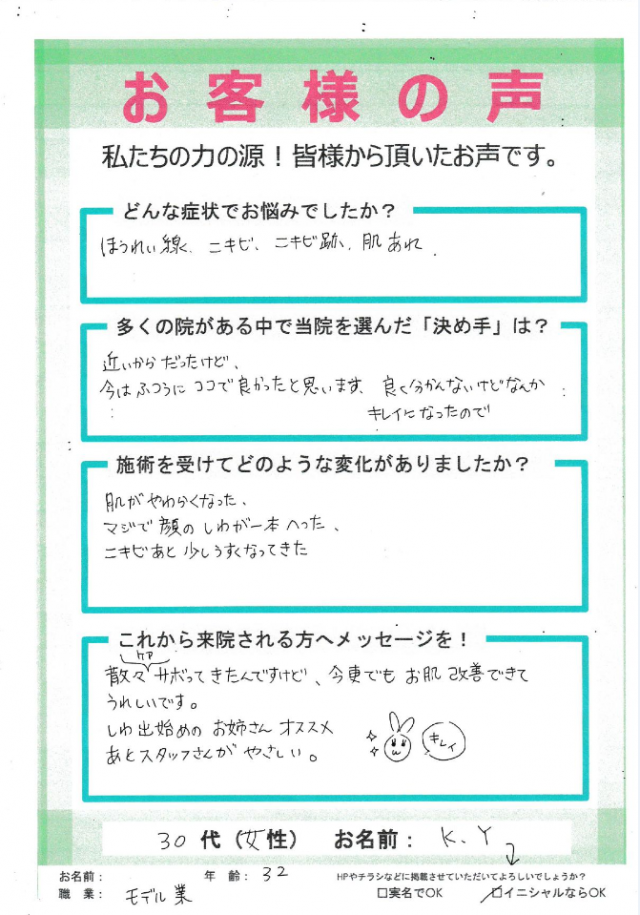 お客様の声
私たちの力の源！皆様から頂いたお声です。
どんな症状でお悩みでしたか？
ほうれい線、ニキビ、ニキビ跡、肌あれ
多くの院がある中で当院を選んだ「決め手」は？
近いからだったけど、
今はふつうにココで良かったと思います、良く分かんないけどなんか
キレイになったので
施術を受けてどのような変化がありましたか？
肌がやわらくなった、
マジで顔のしわが一本へった、
ニキビあと少しうすくなってきた
これから来院される方へメッセージを！
ケア
散々サボってきたんですけど、今更でもお肌改善できて
うれしいです。
しわ出始めのお姉さんオススメ
あとスタッフさんがやさしい。
キレイ
30代（女性） お名前：K.Y
お名前： 年齢：32 HPやチラシなどに掲載させていただいてよろしいでしょうか？
職業：モデル業 □実名でOK □イニシャルならOK